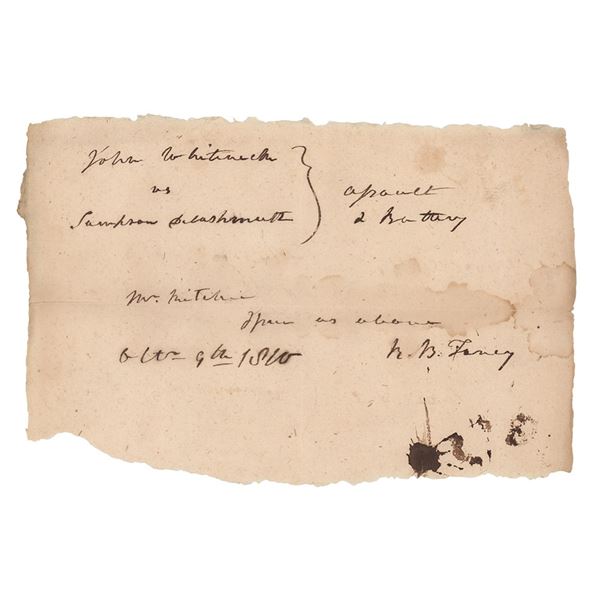 John Whiteneck
vs
Sampson Delashmutt
assault
& Battery
Mr. Ritchie
Issue as above
Octr. 9th 1810
R. B. Taney